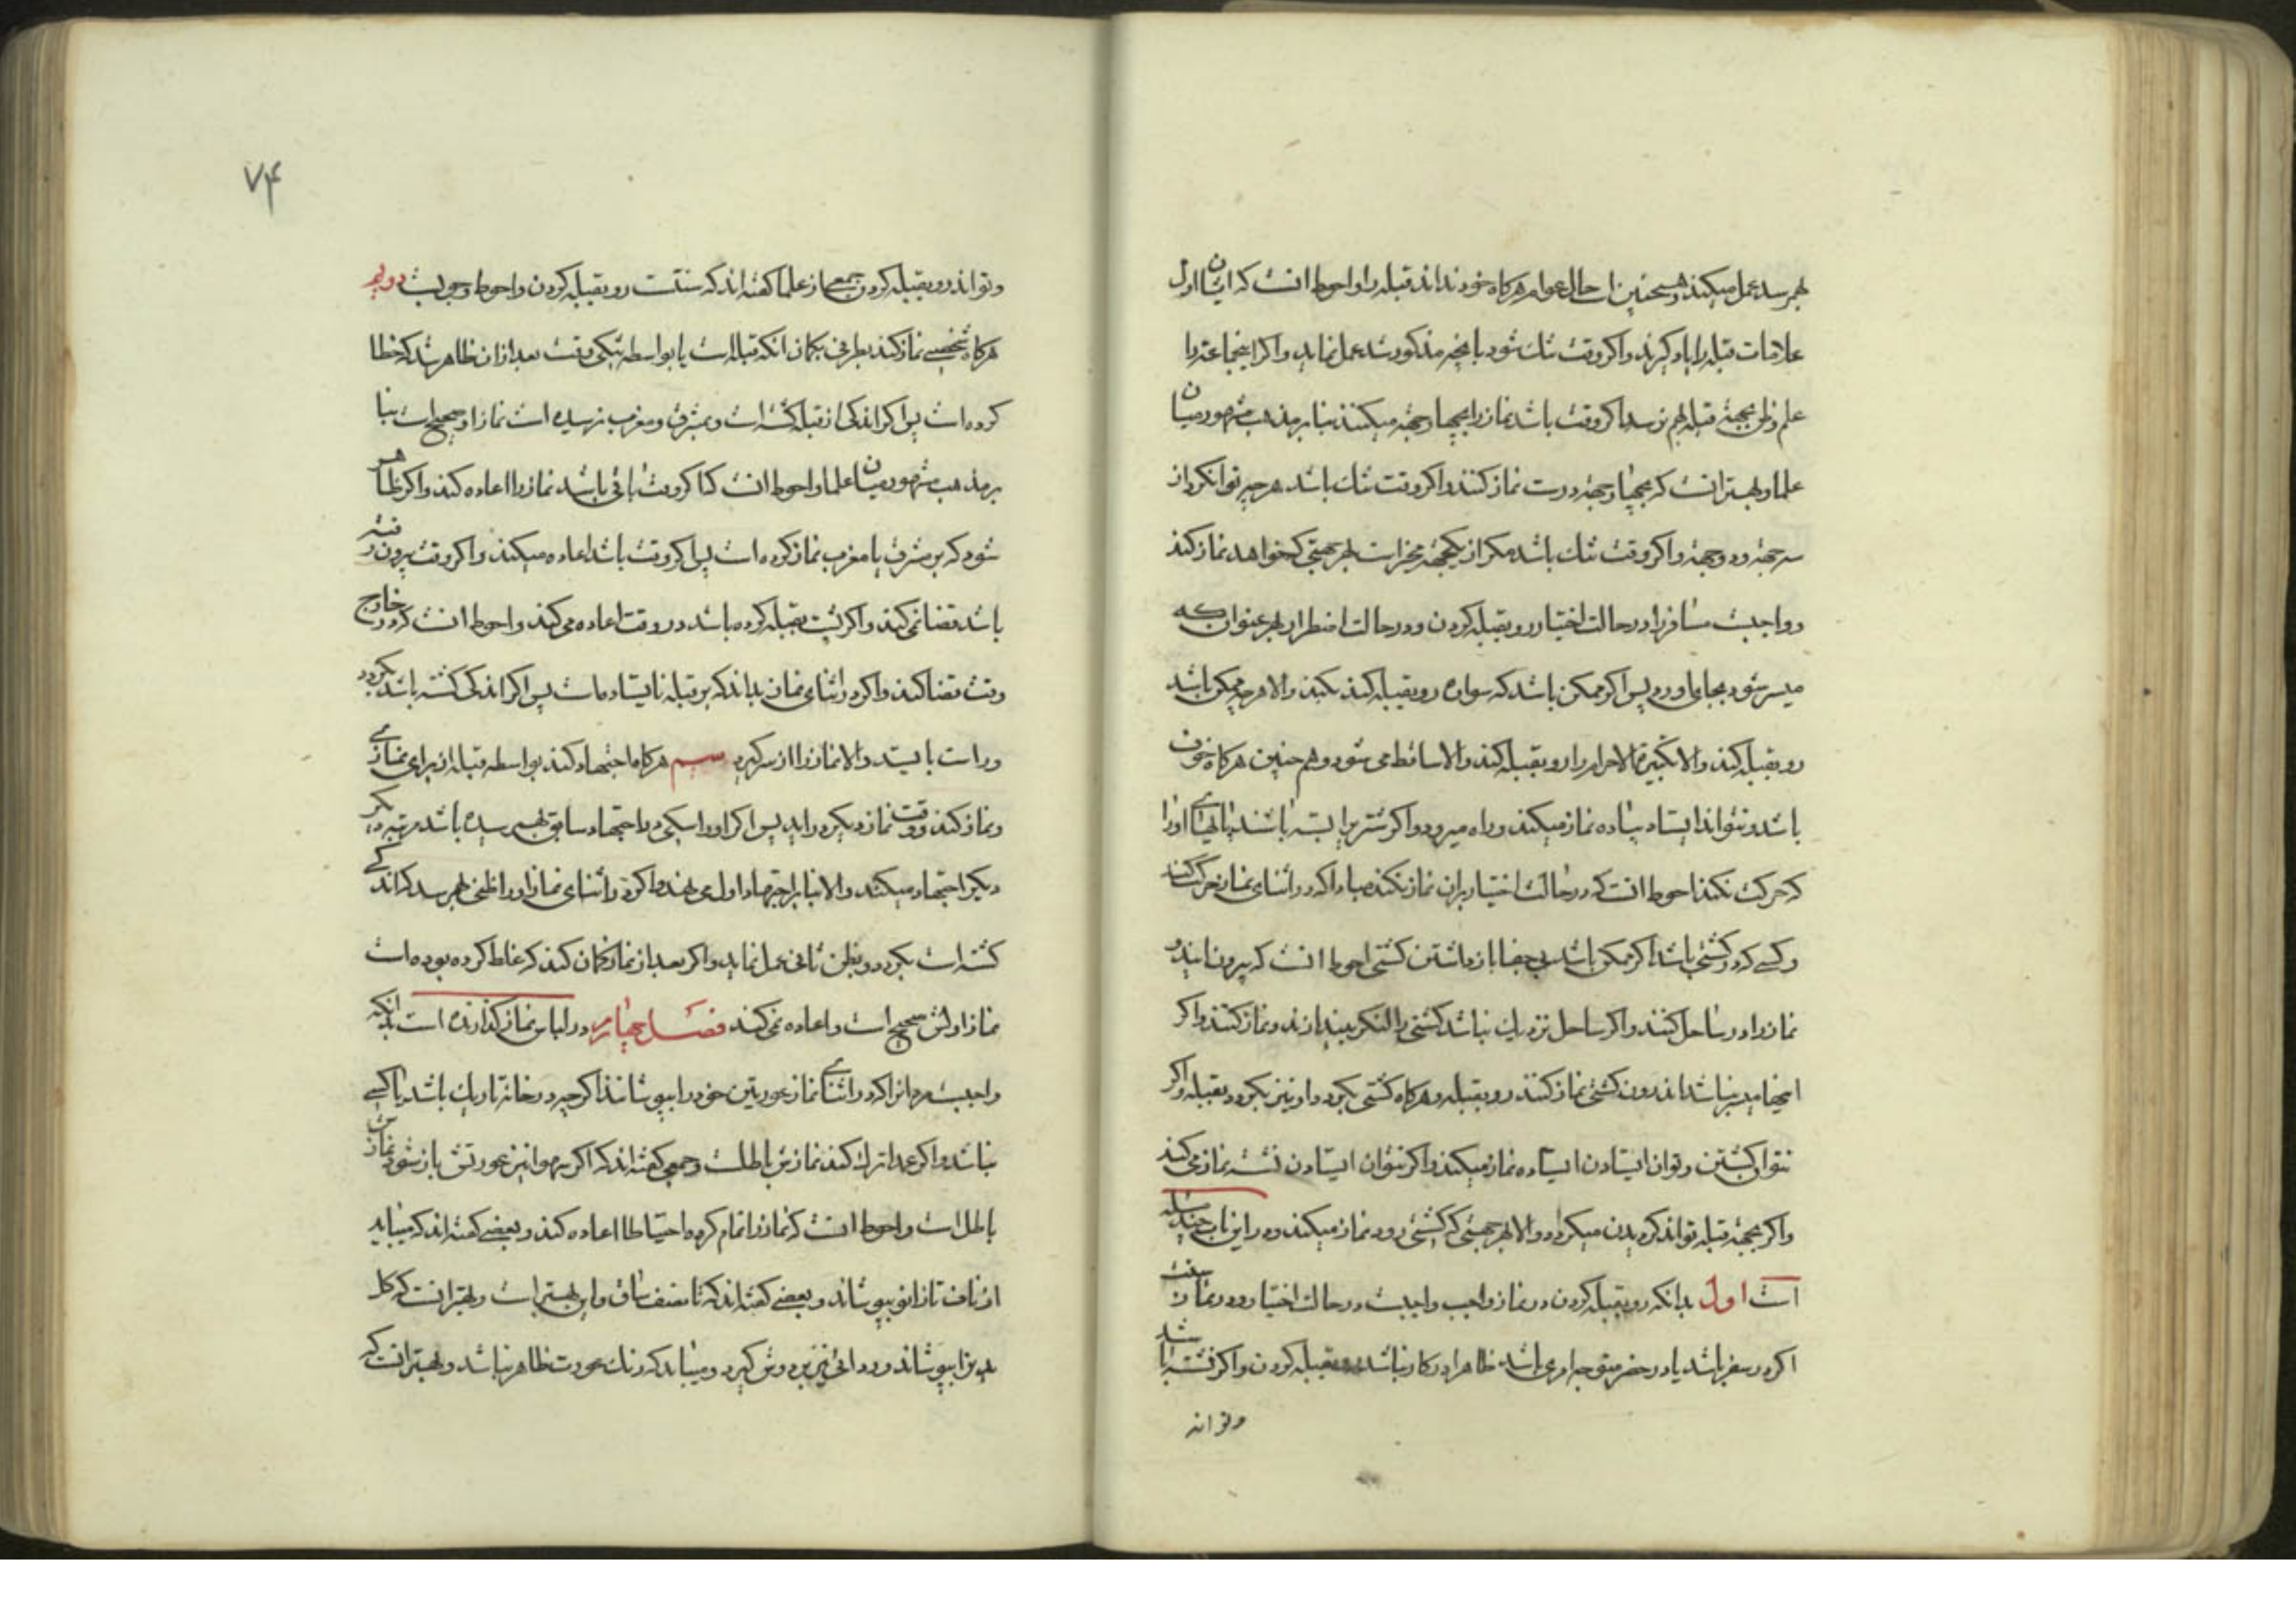 بهم رسد عمل میکند و همچنین است حال عوام هرکاه خود ندانند قبله را و احوط انست که ایشان اول
علامات قبله را یاد کیرند و اکر وقت تنك شود بانچه مذکور شد عمل نماید و اکر اینجماعة را
علم و ظن بجهة قبله بهم نرسد اکر وقت باشد نماز را بچهار جهة میکنند بنا بر مذهب مشهور میان
علما و بهتر انست که بچهار جهة درست نماز کنند و اکر وقت تنك باشد هر چه توانکرد از
سه جهة و دو جهة و اکر وقت تنك باشد مکر از یکجهة مخیر است بهر جهتی که خواهد نماز کند
و واجبست مسافر را در حالت اختیار رو بقبله کردن و در حالت اضطرار بهر عنوان که
میسر شود بجا می اورد پس اکر ممکن باشد که سواره رو بقبله کند بکند و الا هر چه ممکن باشد
رو بقبله کند و الا تکبیرة الاحرام را رو بقبله کند و الا ساقط می شود و هم چنین هرکاه خوف
باشد و نتواند ایستاد پیاده نماز میکند و راه میرود و اکر شتر را بسته باشند پاهای او را
که حرکت نکند احوط انست که در حالت اختیار بران نماز نکند مبادا که در اثنای نماز حرکت کند
و کسے که در کشتی باشد اکر ممکن باشد بی جفا باز داشتن کشتی احوط انست که بیرون ایند و
نماز را در ساحل کنند و اکر ساحل نزدیك نباشد کشتی را لنکر بیندازند و نماز کنند و اکر
اینها میسر نباشد اندرون کشتی نماز کنند رو بقبله و هرکاه کشتی بکردد او نیز بکردد بقبله و اکر
نتوان کشتن و توان ایستادن ایستاده نماز میکند و اکر نتوان ایستادن نشسته نماز می کند
و اکر بجهة قبله تواند کردیدن میکردد و الا بهر جهتی که کشتی رود نماز میکند و در این باب چند مسئله
است اول بدانکه رو بقبله کردن در نماز واجب واجبست در حالت اختیار و در نماز سنت
اکر در سفر باشد یا در حضر متوجه امری باشد ظاهرا در کار نباشد رو بقبله کردن و اکر نشسته باشد
وتواند
۷۴
وتواند رو بقبله کردن جمعے از علما کفته اند که سنتست رو بقبله کردن و احوط وجوبست دویم
هرکاه شخصے نماز کند بطرفی بکمان انکه قبله است یا بواسطه تنکی وقت بعد از ان ظاهر شد که خطا
کرده است پس اکر اندکی از قبله کشته است و بمشرق و مغرب نرسیده است نماز او صحیح است بنا
بر مذهب مشهور میان علما و احوط انست که اکر وقت باقی باشد نماز را اعاده کند و اکر ظاهر
شود که بر مشرق یا مغرب نماز کرده است پس اکر وقت باشد اعاده میکند و اکر وقت بیرون رفته
باشد قضا نمی کند و اکر پشت بقبله کرده باشد در وقت اعاده می کند و احوط انست که در خارج
وقت قضا کند و اکر در اثنای نماز بداند که بر قبله نایستاده است پس اکر اندکی کشته باشد بکردد
و راست بایستد و الا نماز را از سر کیرد سیم هرکاه اجتهاد کند بواسطه قبله از برای نمازے
و نماز کند و وقت نماز دیکر در اید پس اکر او را شکی در اجتهاد سابق بهم رسیده باشد مرتبه دیکر
دیکر اجتهاد میکند و الا بنا بر اجتهاد اول می نهد و اکر در اثنای نماز او را ظنی بهم رسد که اندکے
کشته است بکردد و بظن ثانی عمل نماید و اکر بعد از نماز کمان کند که غلط کرده بوده است
نماز اولش صحیح است و اعاده نمی کند فصل چهارم در لباس نماز کذارنده است بدانکه
واجبست مرد را که در اثنای نماز عورتین خود را بپوشانند اکر چه در خانه تاریك باشد یا کسے
نباشد و اکر عمدا ترك کند نمازش باطلست و جمعی کفته اند که اکر سهوا نیز عورتش باز شود نمازش
باطل است و احوط انست که نماز را تمام کرده احتیاطا اعاده کند و بعضے کفته اند که میباید
از ناف تا زانو بپوشاند و بعضے کفته اند که تا نصف ساق و این بهتر است و بهتر انست که کل
بدن را بپوشاند و ردائی نیز بر دوش کیرد و میباید که رنك عورت ظاهر نباشد و بهتر انست که